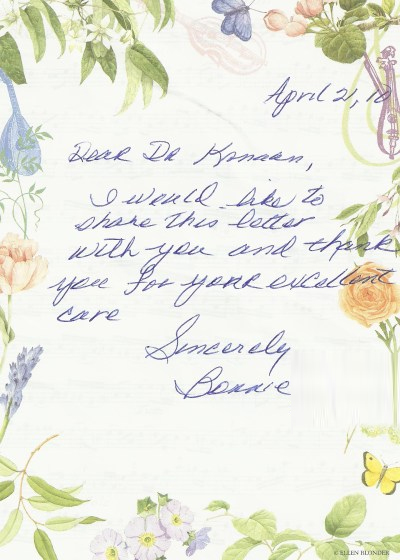 April 21, 10
Dear Dr Kanaan,
I would like to
share this letter
with you and thank
you for your excellent
care
Sincerely
Bonnie
© ELLEN BLONDER